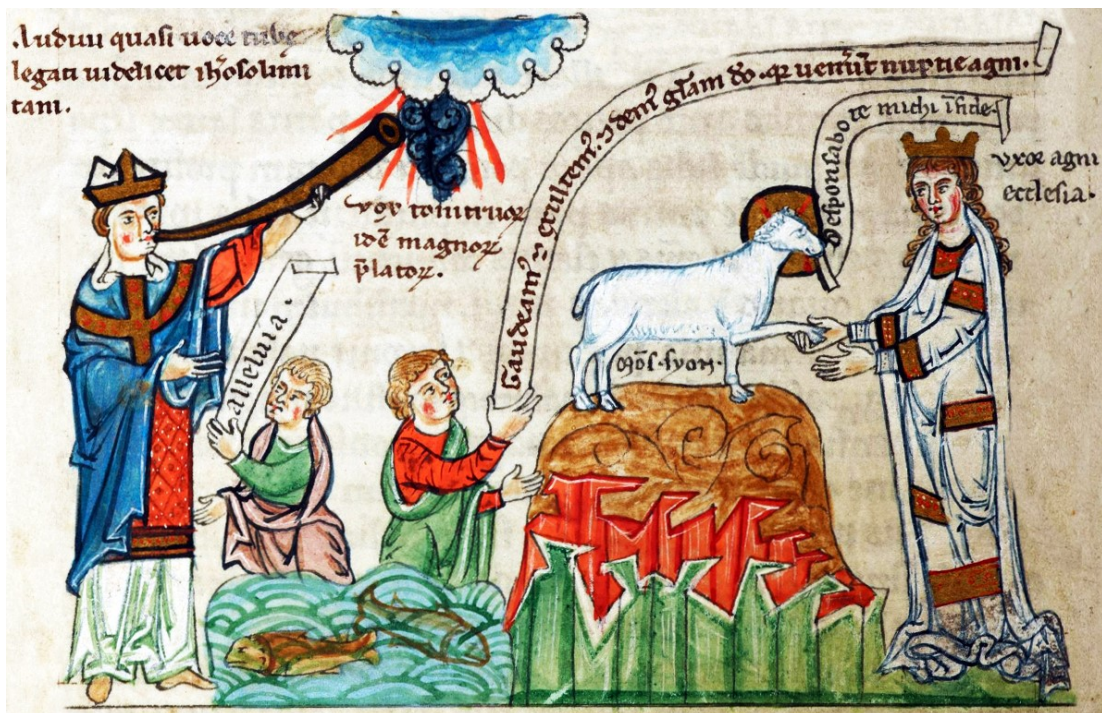 Audiui quasi uocē tubę
legati uidelicet ih̄osolimi
tani.
vox tonitruoꝝ
idē magnoꝝ
p̄latoꝝ.
alleluia.
Gaudeamꝰ ⁊ exultemꝰ ⁊ demꝰ gl̄am dō. qꝛ uener̄ūt nuptie agni.
Desponsabo te michi ī fide.
vxor agni
ecclesia.
Mōs. syon.